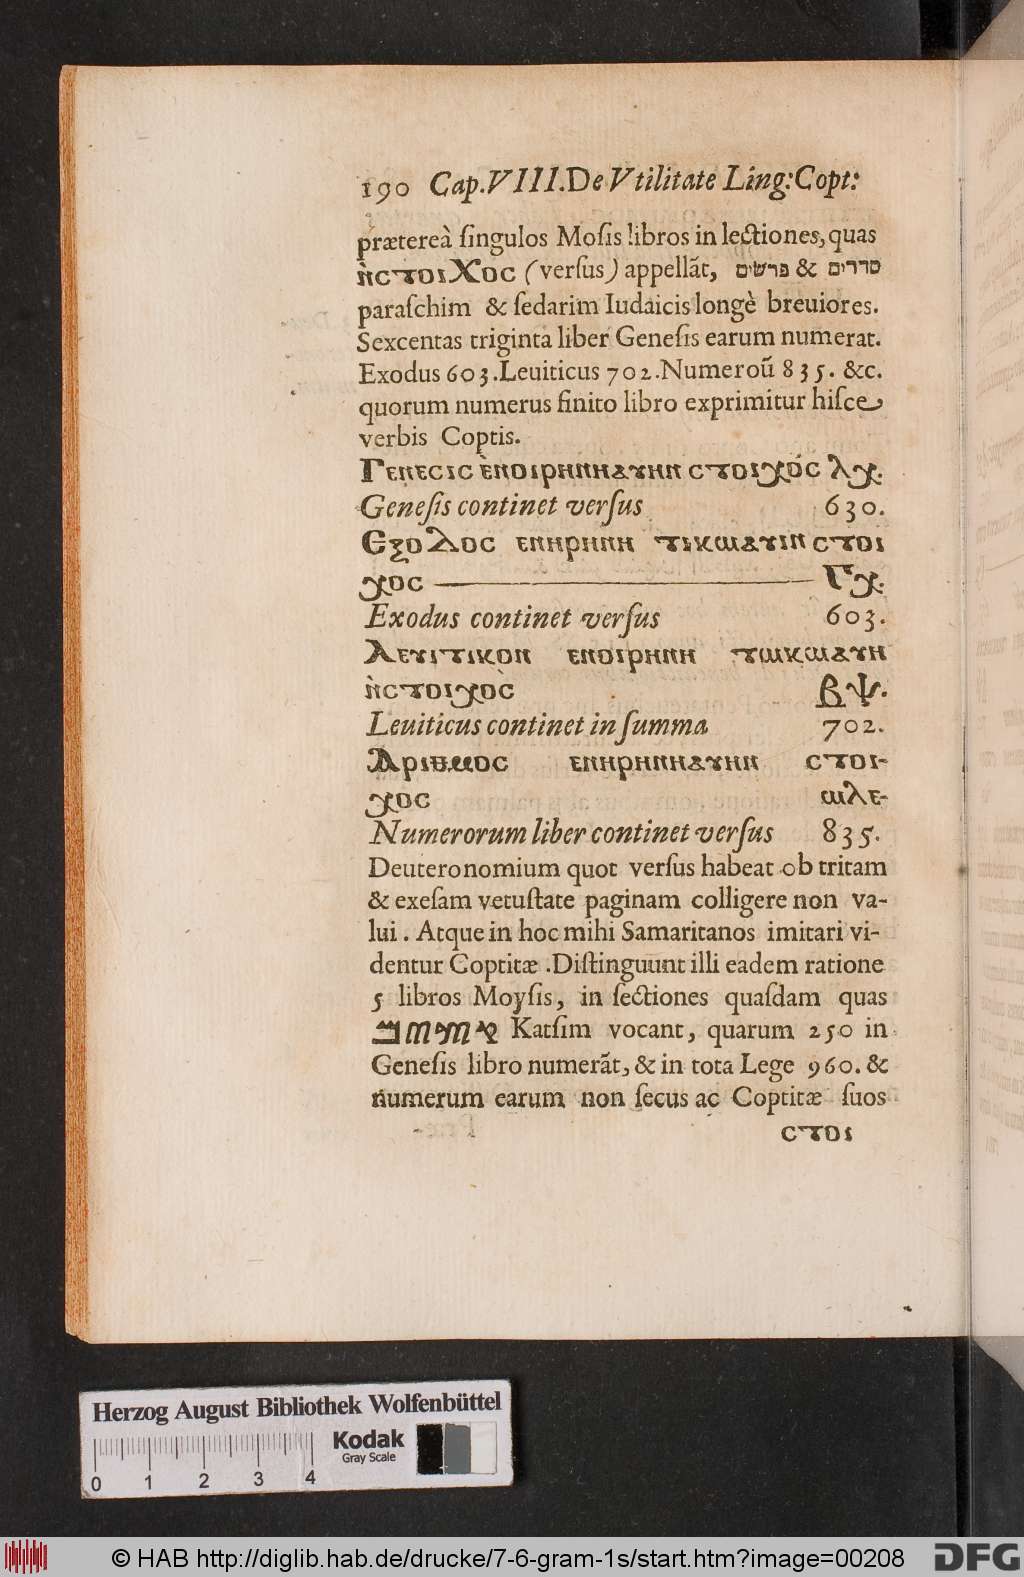 190 Cap.VIII.De Vtilitate Ling:Copt:
prætereà ſingulos Moſis libros in lectiones, quas
ⲛ̀ⲥⲧⲟⲓⲬⲟⲥ (verſus) appellãt, פרשים & סדרים
paraſchim & ſedarim Iudaicis longè breuiores.
Sexcentas triginta liber Geneſis earum numerat.
Exodus 603. Leuiticus 702. Numeroũ 835. &c.
quorum numerus finito libro exprimitur hiſce
verbis Coptis.
Ⲅⲉⲛⲉⲥⲓⲥ ⲉ̀ⲛⲟⲓⲣⲏⲛⲏⲁⲩⲏⲛ ⲥⲧⲟⲓⲭⲟ́ⲥ ⲗⲭ.
Geneſis continet verſus 630.
Ⲉⲝⲟⲇⲟⲥ ⲉⲛⲏⲣⲏⲛⲏ ⲧⲓⲕⲱⲁⲩⲓⲛ ⲥⲧⲟⲓ
ⲭⲟⲥ Ⲅⲭ.
Exodus continet verſus 603.
Ⲗⲉⲩⲓⲧⲓⲕⲟⲛ ⲉⲛⲟⲓⲣⲏⲛⲏ ⲧⲱⲕⲱⲁⲩⲏ
ⲛ̀ⲥⲧⲟⲓⲭⲟ̀ⲥ ⲃⲯ.
Leuiticus continet in ſumma 702.
Ⲁⲣⲓⲑⲙⲟⲥ ⲉⲛⲏⲣⲏⲛⲏⲁⲩⲏⲛ ⲥⲧⲟⲓ-
ⲭⲟⲥ ⲱⲗⲉ-
Numerorum liber continet verſus 835.
Deuteronomium quot verſus habeat ob tritam
& exeſam vetuſtate paginam colligere non va-
lui. Atque in hoc mihi Samaritanos imitari vi-
dentur Coptitæ. Diſtinguunt illi eadem ratione
5 libros Moyſis, in ſectiones quaſdam quas
Katſim vocant, quarum 250 in
Geneſis libro numerãt, & in tota Lege 960. &
numerum earum non ſecus ac Coptitæ ſuos
ⲥⲧⲟⲓ
Herzog August Bibliothek Wolfenbüttel
Kodak
Gray Scale
0 1 2 3 4
© HAB http://diglib.hab.de/drucke/7-6-gram-1s/start.htm?image=00208
DFG